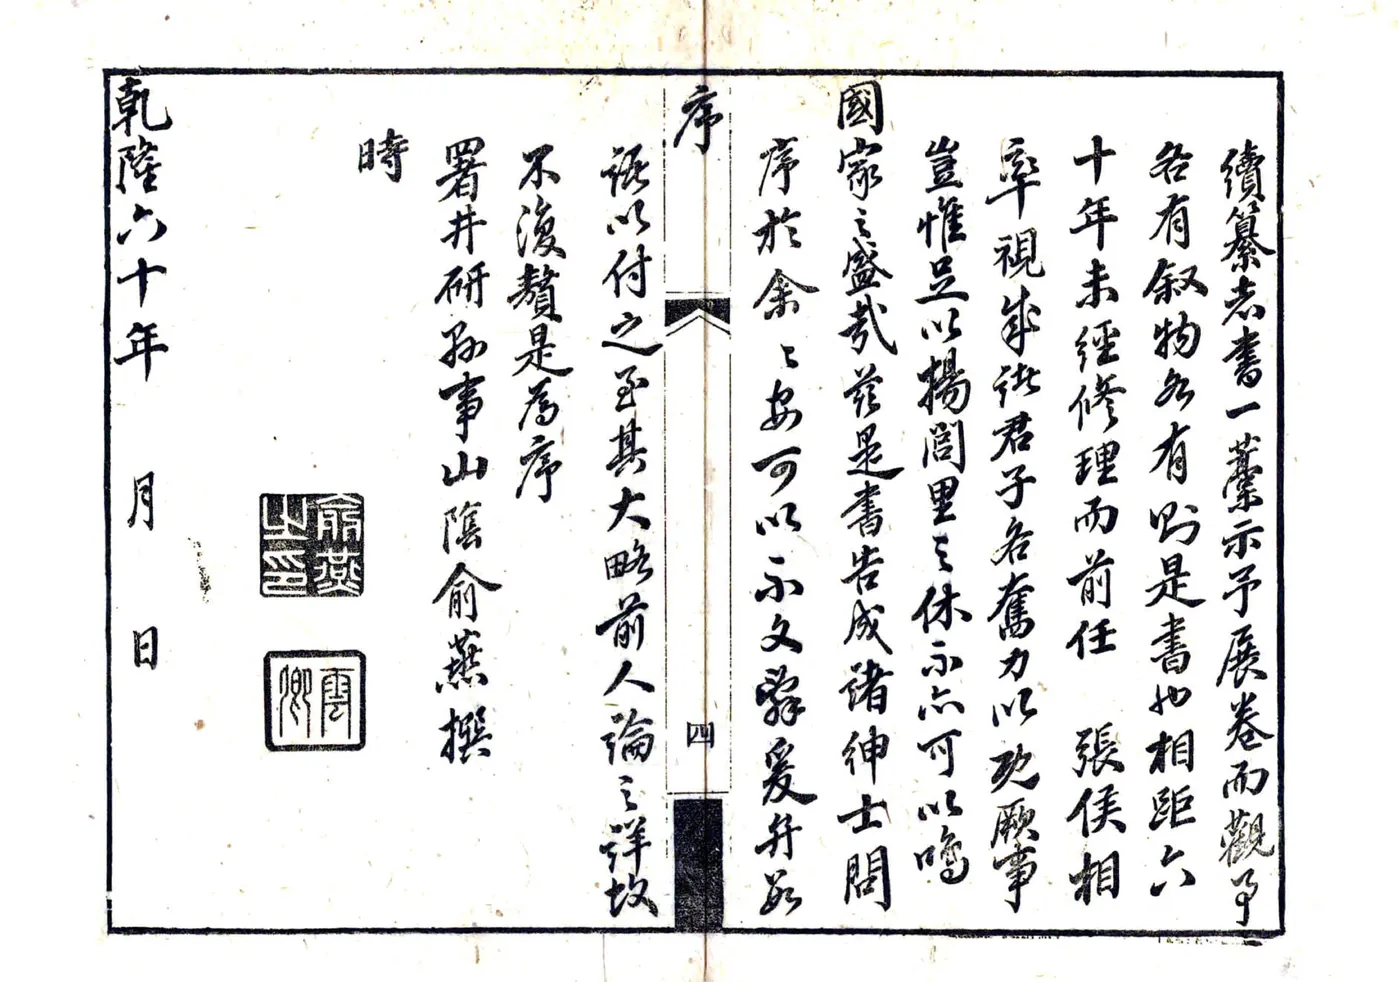 續纂志書一藁示予展卷而觀事
各有叙物各有則是書也相距六
十年未經修理而前任　張侯相
率視成諸君子各奮力以攻厥事
豈惟足以揚閭里之休而亦可以鳴
國家之盛哉茲是書告成諸紳士問
序於余余安可以不文辭爰弁數
序
四
語以付之至其大略前人論之詳故
不復贅是為序
署井研縣事山陰俞燕撰
時
乾隆六十年　月　日
俞燕之印
雲卿